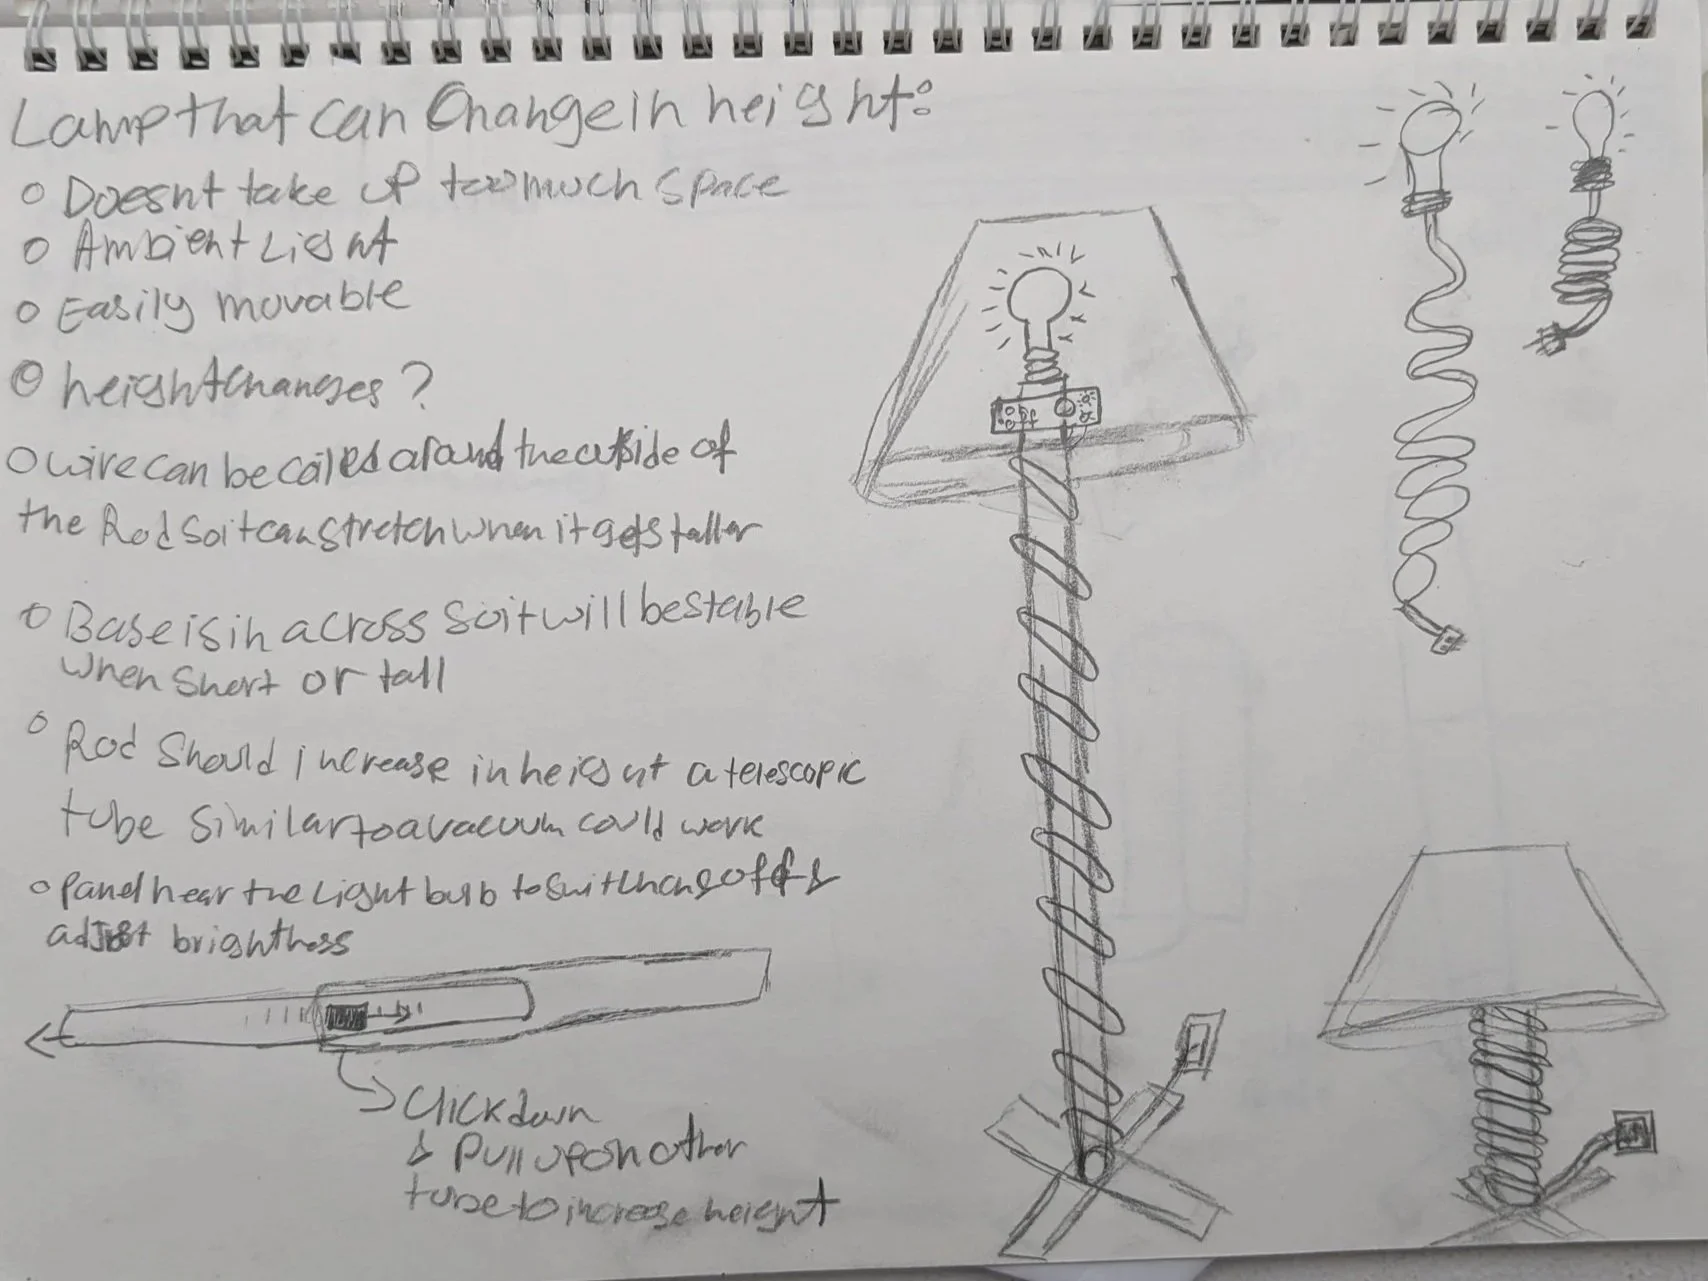 Lamp that can Change in height:
Doesnt take up too much space
Ambient Light
Easily movable
height changes?
wire can be coiled around the outside of
the Rod so it can stretch when it gets taller
Base is in a cross so it will be stable
when short or tall
Rod should increase in height a telescopic
tube similar to a vacuum could work
Panel near the Light bulb to switch on & off &
adjust brightness
Click down
& Pull up on other
tube to increase height